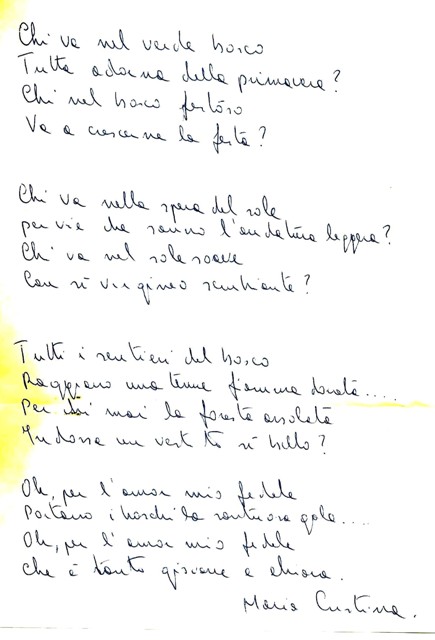 Chi va nel verde bosco
Tutta adorna della primavera?
Chi nel bosco festoso
Va a crescerne la festa?
Chi va nella spera del sole
per vie che sanno l'andatura leggera?
Chi va nel sole soave
Con sì virgineo sembiante?
Tutti i sentieri del bosco
Raggiano una tenue fiamma dorata....
Per chi mai la foresta assolata
Indossa un vestito sì bello?
Oh, per l'amor mio fedele
Portano i boschi la sontuosa gala....
Oh, per l'amor mio fedele
che è tanto giovane e chiara.
Maria Cristina.